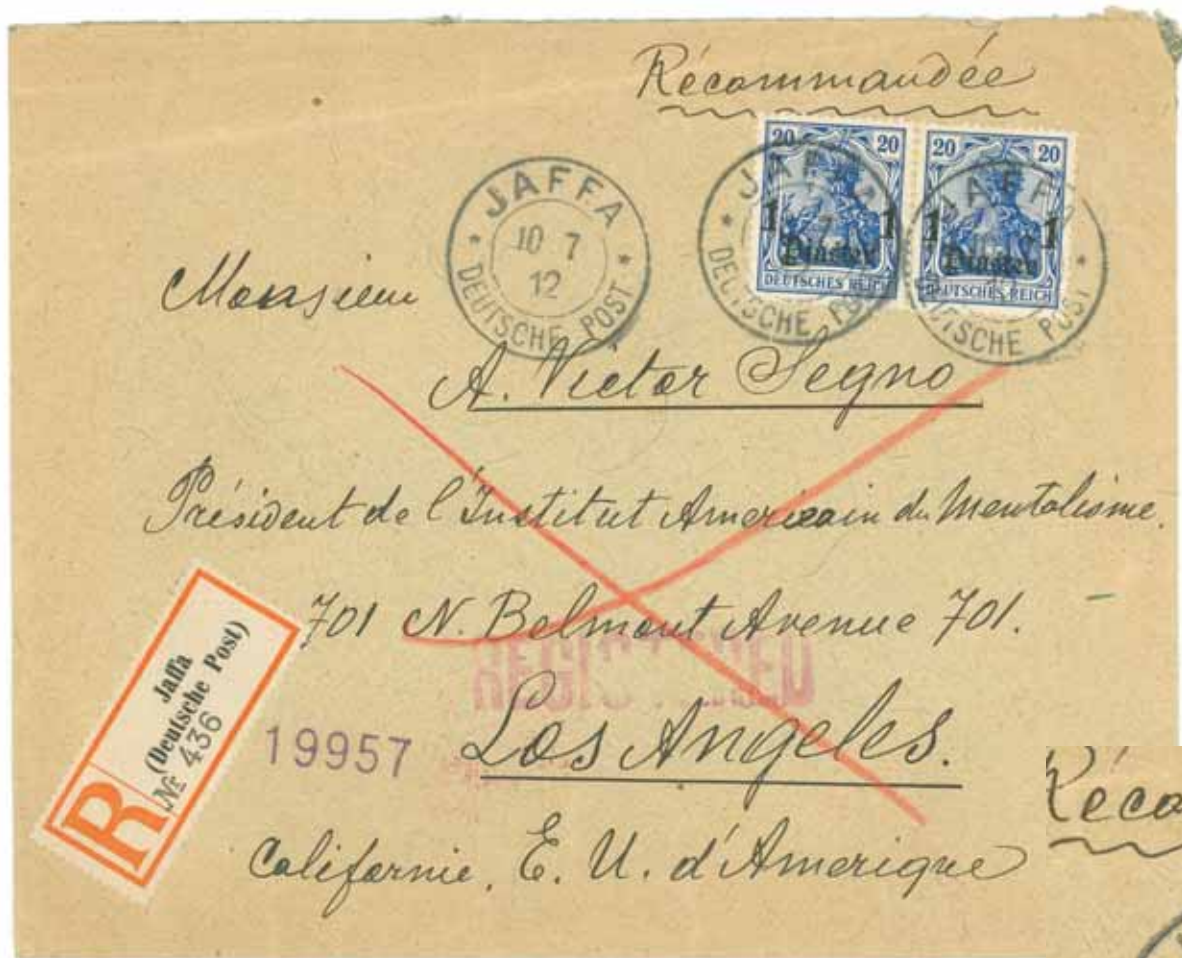 Récommandée
20 20
1 1
Piaster
DEUTSCHES REICH
20 20
1 1
Piaster
DEUTSCHES REICH
JAFFA
10 7
12
DEUTSCHE POST
JAFFA
DEUTSCHE POST
JAFFA
DEUTSCHE POST
Monsieur
A. Victor Segno
Président de l'Institut Americain du Mentalisme.
701 N. Belmont Avenue 701.
REGISTERED
Los Angeles.
Californie, E. U. d'Amerique
Jaffa
(Deutsche Post)
№ 436
R
19957
Réco